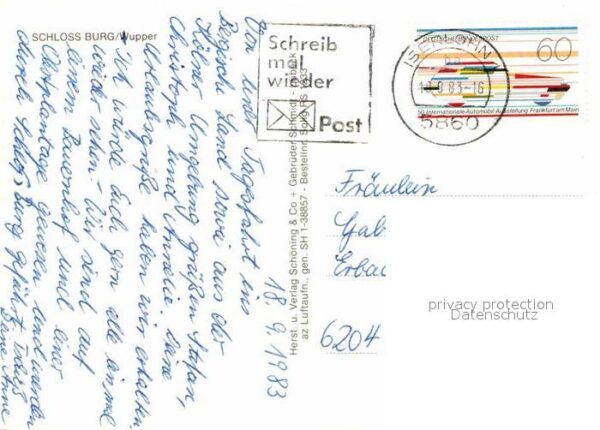 SCHLOSS BURG/Wupper
18.9.1983
Von einer Tagesfahrt ins
Bergische Land sowie aus der
Kölner Umgebung grüßen Stefan,
Christoph und Annelie. Deine
Urlaubsgrüße haben wir erhalten.
Ich würde Euch gern alle einmal
wieder sehen. Wir sind auf
einem Bauernhof und einer
Obstplantage gewesen und werden
Schloß Burg
Herst. u. Verlag Schöning & Co + Gebrüder Schmidt, Lübeck
az Luftaufn., gen. SH 1-38857 - Bestellnr.
Schreib
mal
wieder
Post
ISERLOHN
5860
DEUTSCHE BUNDESPOST
60
50. Internationale Automobil-Ausstellung Frankfurt am Main
Fräulein
Gab
Erbac
6204
privacy protection
Datenschutz